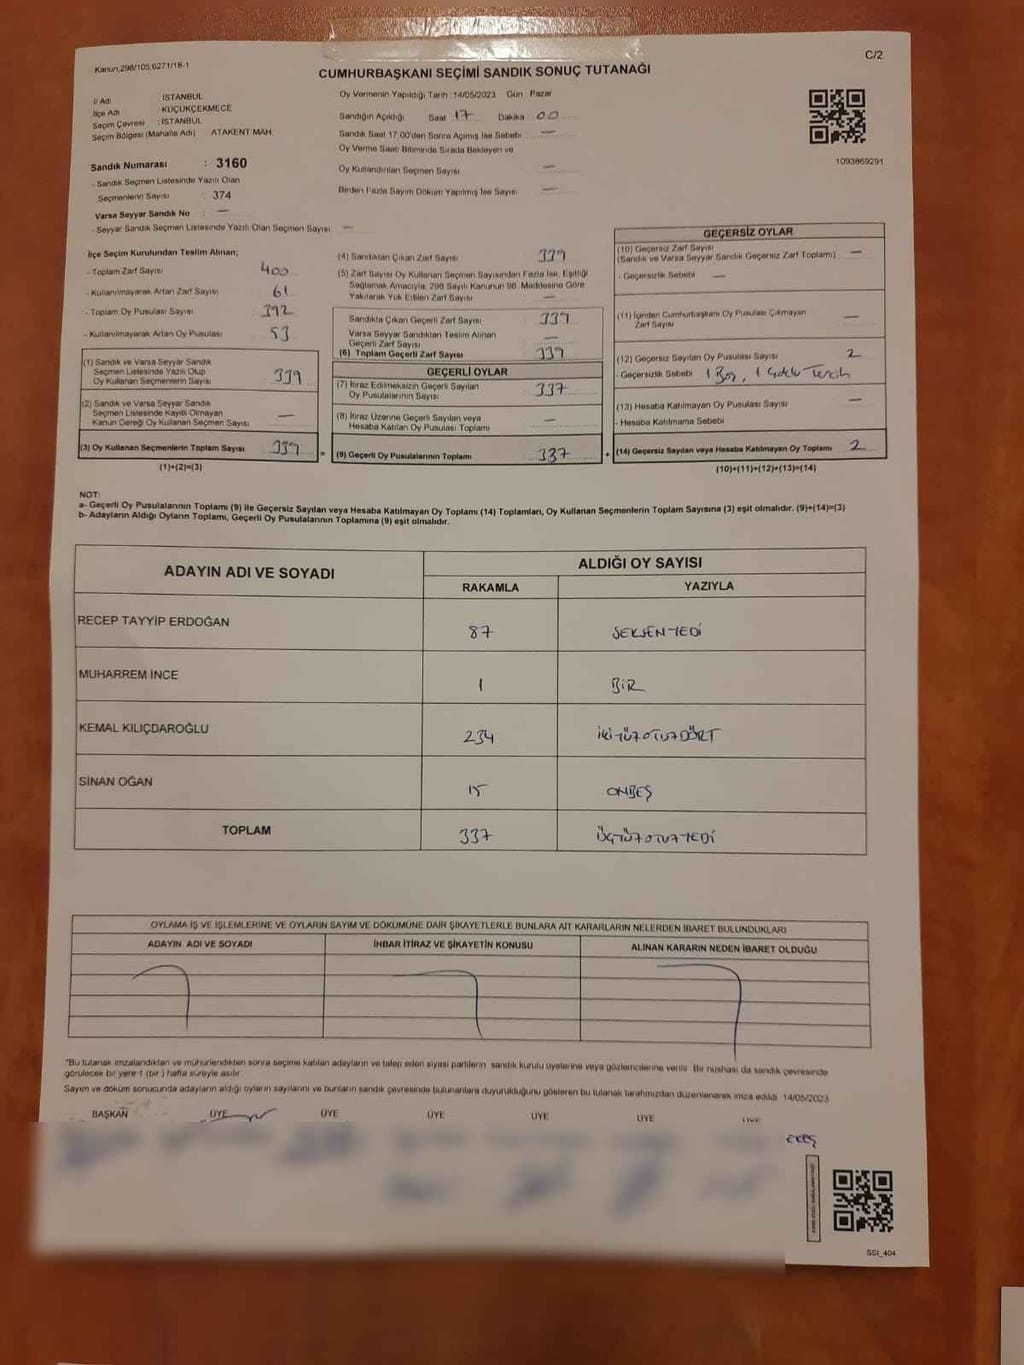 C/2
Kanun:298/105,6271/18-1
CUMHURBAŞKANI SEÇİMİ SANDIK SONUÇ TUTANAĞI
İl Adı : İSTANBUL
İlçe Adı : KÜÇÜKÇEKMECE
Seçim Çevresi : İSTANBUL
Seçim Bölgesi (Mahalle Adı) ATAKENT MAH.
Oy Vermenin Yapıldığı Tarih :14/05/2023 Gün : Pazar
Sandığın Açıldığı Saat 17 Dakika 00
Sandık Saat 17:00'den Sonra Açılmış İse Sebebi : —
Oy Verme Saati Bitiminde Sırada Bekleyen ve
Oy Kullandırılan Seçmen Sayısı —
Birden Fazla Sayım Döküm Yapılmış İse Sayısı —
1093869291
Sandık Numarası : 3160
- Sandık Seçmen Listesinde Yazılı Olan
Seçmenlerin Sayısı : 374
Varsa Seyyar Sandık No : —
- Seyyar Sandık Seçmen Listesinde Yazılı Olan Seçmen Sayısı —
İlçe Seçim Kurulundan Teslim Alınan;
- Toplam Zarf Sayısı 400
- Kullanılmayarak Artan Zarf Sayısı 61
- Toplam Oy Pusulası Sayısı 392
- Kullanılmayarak Artan Oy Pusulası 53
(1) Sandık ve Varsa Seyyar Sandık
Seçmen Listesinde Yazılı Olup
Oy Kullanan Seçmenlerin Sayısı 339
(2) Sandık ve Varsa Seyyar Sandık
Seçmen Listesinde Kayıtlı Olmayan
Kanun Gereği Oy Kullanan Seçmen Sayısı —
(3) Oy Kullanan Seçmenlerin Toplam Sayısı 339
(1)+(2)=(3)
(4) Sandıktan Çıkan Zarf Sayısı 339
(5) Zarf Sayısı Oy Kullanan Seçmen Sayısından Fazla İse, Eşitliği
Sağlamak Amacıyla, 298 Sayılı Kanunun 98. Maddesine Göre
Yakılarak Yok Edilen Zarf Sayısı —
Sandıkta Çıkan Geçerli Zarf Sayısı 339
Varsa Seyyar Sandıktan Teslim Alınan
Geçerli Zarf Sayısı —
(6) Toplam Geçerli Zarf Sayısı 339
GEÇERLİ OYLAR
(7) İtiraz Edilmeksizin Geçerli Sayılan
Oy Pusulalarının Sayısı 337
(8) İtiraz Üzerine Geçerli Sayılan veya
Hesaba Katılan Oy Pusulası Toplamı —
= (9) Geçerli Oy Pusulalarının Toplamı 337
GEÇERSİZ OYLAR
(10) Geçersiz Zarf Sayısı
(Sandık ve Varsa Seyyar Sandık Geçersiz Zarf Toplamı) —
- Geçersizlik Sebebi —
(11) İçinden Cumhurbaşkanı Oy Pusulası Çıkmayan
Zarf Sayısı —
(12) Geçersiz Sayılan Oy Pusulası Sayısı 2
- Geçersizlik Sebebi 1 Boş, 1 Çoklu Tercih
(13) Hesaba Katılmayan Oy Pusulası Sayısı —
- Hesaba Katılmama Sebebi
+ (14) Geçersiz Sayılan veya Hesaba Katılmayan Oy Toplamı 2
(10)+(11)+(12)+(13)=(14)
NOT:
a- Geçerli Oy Pusulalarının Toplamı (9) ile Geçersiz Sayılan veya Hesaba Katılmayan Oy Toplamı (14) Toplamları, Oy Kullanan Seçmenlerin Toplam Sayısına (3) eşit olmalıdır. (9)+(14)=(3)
b- Adayların Aldığı Oyların Toplamı, Geçerli Oy Pusulalarının Toplamına (9) eşit olmalıdır.
ADAYIN ADI VE SOYADI ALDIĞI OY SAYISI
RAKAMLA YAZIYLA
RECEP TAYYİP ERDOĞAN 87 SEKSENYEDİ
MUHARREM İNCE 1 BİR
KEMAL KILIÇDAROĞLU 234 İKİYÜZOTUZDÖRT
SİNAN OĞAN 15 ONBEŞ
TOPLAM 337 ÜÇYÜZOTUZYEDİ
OYLAMA İŞ VE İŞLEMLERİNE VE OYLARIN SAYIM VE DÖKÜMÜNE DAİR ŞİKAYETLERLE BUNLARA AİT KARARLARIN NELERDEN İBARET BULUNDUKLARI
ADAYIN ADI VE SOYADI İHBAR İTİRAZ VE ŞİKAYETİN KONUSU ALINAN KARARIN NEDEN İBARET OLDUĞU
*Bu tutanak imzalandıktan ve mühürlendikten sonra seçime katılan adayların ve talep eden siyasi partilerin sandık kurulu üyelerine veya gözlemcilerine verilir. Bir nüshası da sandık çevresinde
görülecek bir yere 1 (bir ) hafta süreyle asılır.
Sayım ve döküm sonucunda adayların aldığı oyların sayılarını ve bunların sandık çevresinde bulunanlara duyurulduğunu gösteren bu tutanak tarafımızdan düzenlenerek imza edildi. 14/05/2023
BAŞKAN ÜYE ÜYE ÜYE ÜYE ÜYE ÜYE
SSI_404